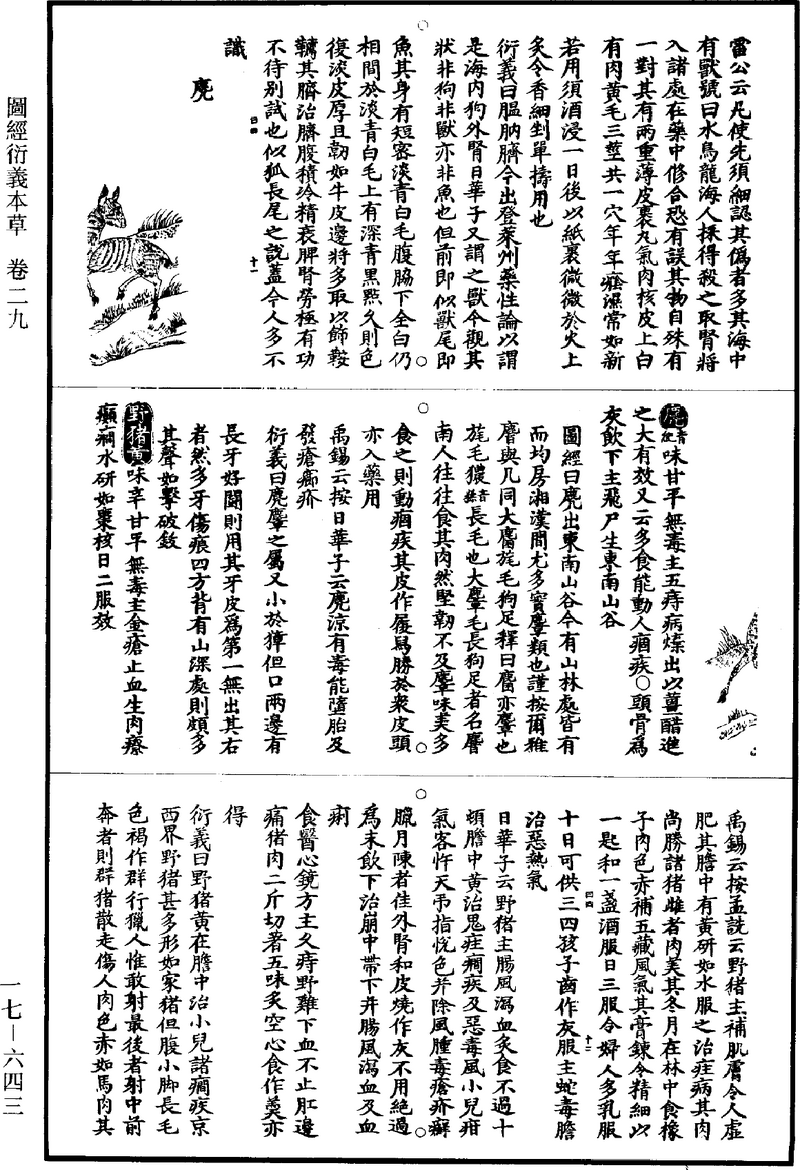 圖經衍義本草　卷二九
雷公云凡使先須細認其偽者多其海中
有獸號曰水烏龍海人採得殺之取腎將
入諸處在藥中修合恐有誤其物自殊有
一對其有兩重薄皮裹丸氣肉核皮上自
有肉黃毛三莖共一穴年年癊濕常如新
若用須酒浸一日後以紙裹微微於火上
炙令香細剉單擣用也
衍義曰膃肭臍今出登萊州藥性論以謂
是海內狗外腎日華子又謂之獸今觀其
狀非狗非獸亦非魚也但前即似獸尾即
魚其身有短密淡青白毛腹脇下全白仍
相間於淡青白毛上有深青黑點久則色
復淡皮厚且韌如牛皮邊將多取以飾鞍
韉其臍治臍腹積冷精衰脾腎勞極有功
不待別試也似狐長尾之說蓋今人多不
識
四四
十一
麂
麂
味甘平無毒主五痔病煠出以薑醋進
之大有效又云多食能動人痼疾○頭骨為
灰飲下主飛尸生東南山谷
圖經曰麂出東南山谷今有山林處皆有
而均房湘漢間尤多實麞類也謹按爾雅
麕與几同大麕旄毛狗足釋曰麕亦麞也
旄毛獶長毛也大麞毛長狗足者名麕
南人往往食其肉然堅韌不及麞味美多
食之則動痼疾其皮作履舄勝於衆皮頭
亦入藥用
禹錫云按日華子云麂涼有毒能墮胎及
發瘡癤疥
衍義曰麂麞之屬又小於獐但口兩邊有
長牙好鬭則用其牙皮為第一無出其右
者然多牙傷痕四方皆有山深處則頗多
其聲如擊破鈸
野猪黃
味辛甘平無毒主金瘡止血生肉療
癲癇水研如棗核日二服效
禹錫云按孟詵云野猪主補肌膚令人虛
肥其膽中有黃研如水服之治疰病其肉
尚勝諸猪雌者肉美其冬月在林中食橡
子肉色赤補五藏風氣其膏鍊令精細以
一匙和一盞酒服日三服令婦人多乳服
十日可供三四孩子齒作灰服主蛇毒膽
治惡熱氣
四四
十二
日華子云野猪主腸風瀉血炙食不過十
頓膽中黃治鬼疰癇疾及惡毒風小兒疳
氣客忤天弔指恍色并除風腫毒瘡疥癬
臘月陳者佳外腎和皮燒作灰不用絕過
為末飲下治崩中帶下并腸風瀉血及血
痢
食醫心鏡方主久痔野雞下血不止肛邊
痛猪肉二斤切著五味炙空心食作羹亦
得
衍義曰野猪黃在膽中治小兒諸癇疾京
西界野猪甚多形如家猪但腹小脚長毛
色褐作群行獵人惟敢射最後者射中前
奔者則群猪散走傷人肉色赤如馬肉其
一七—六四三